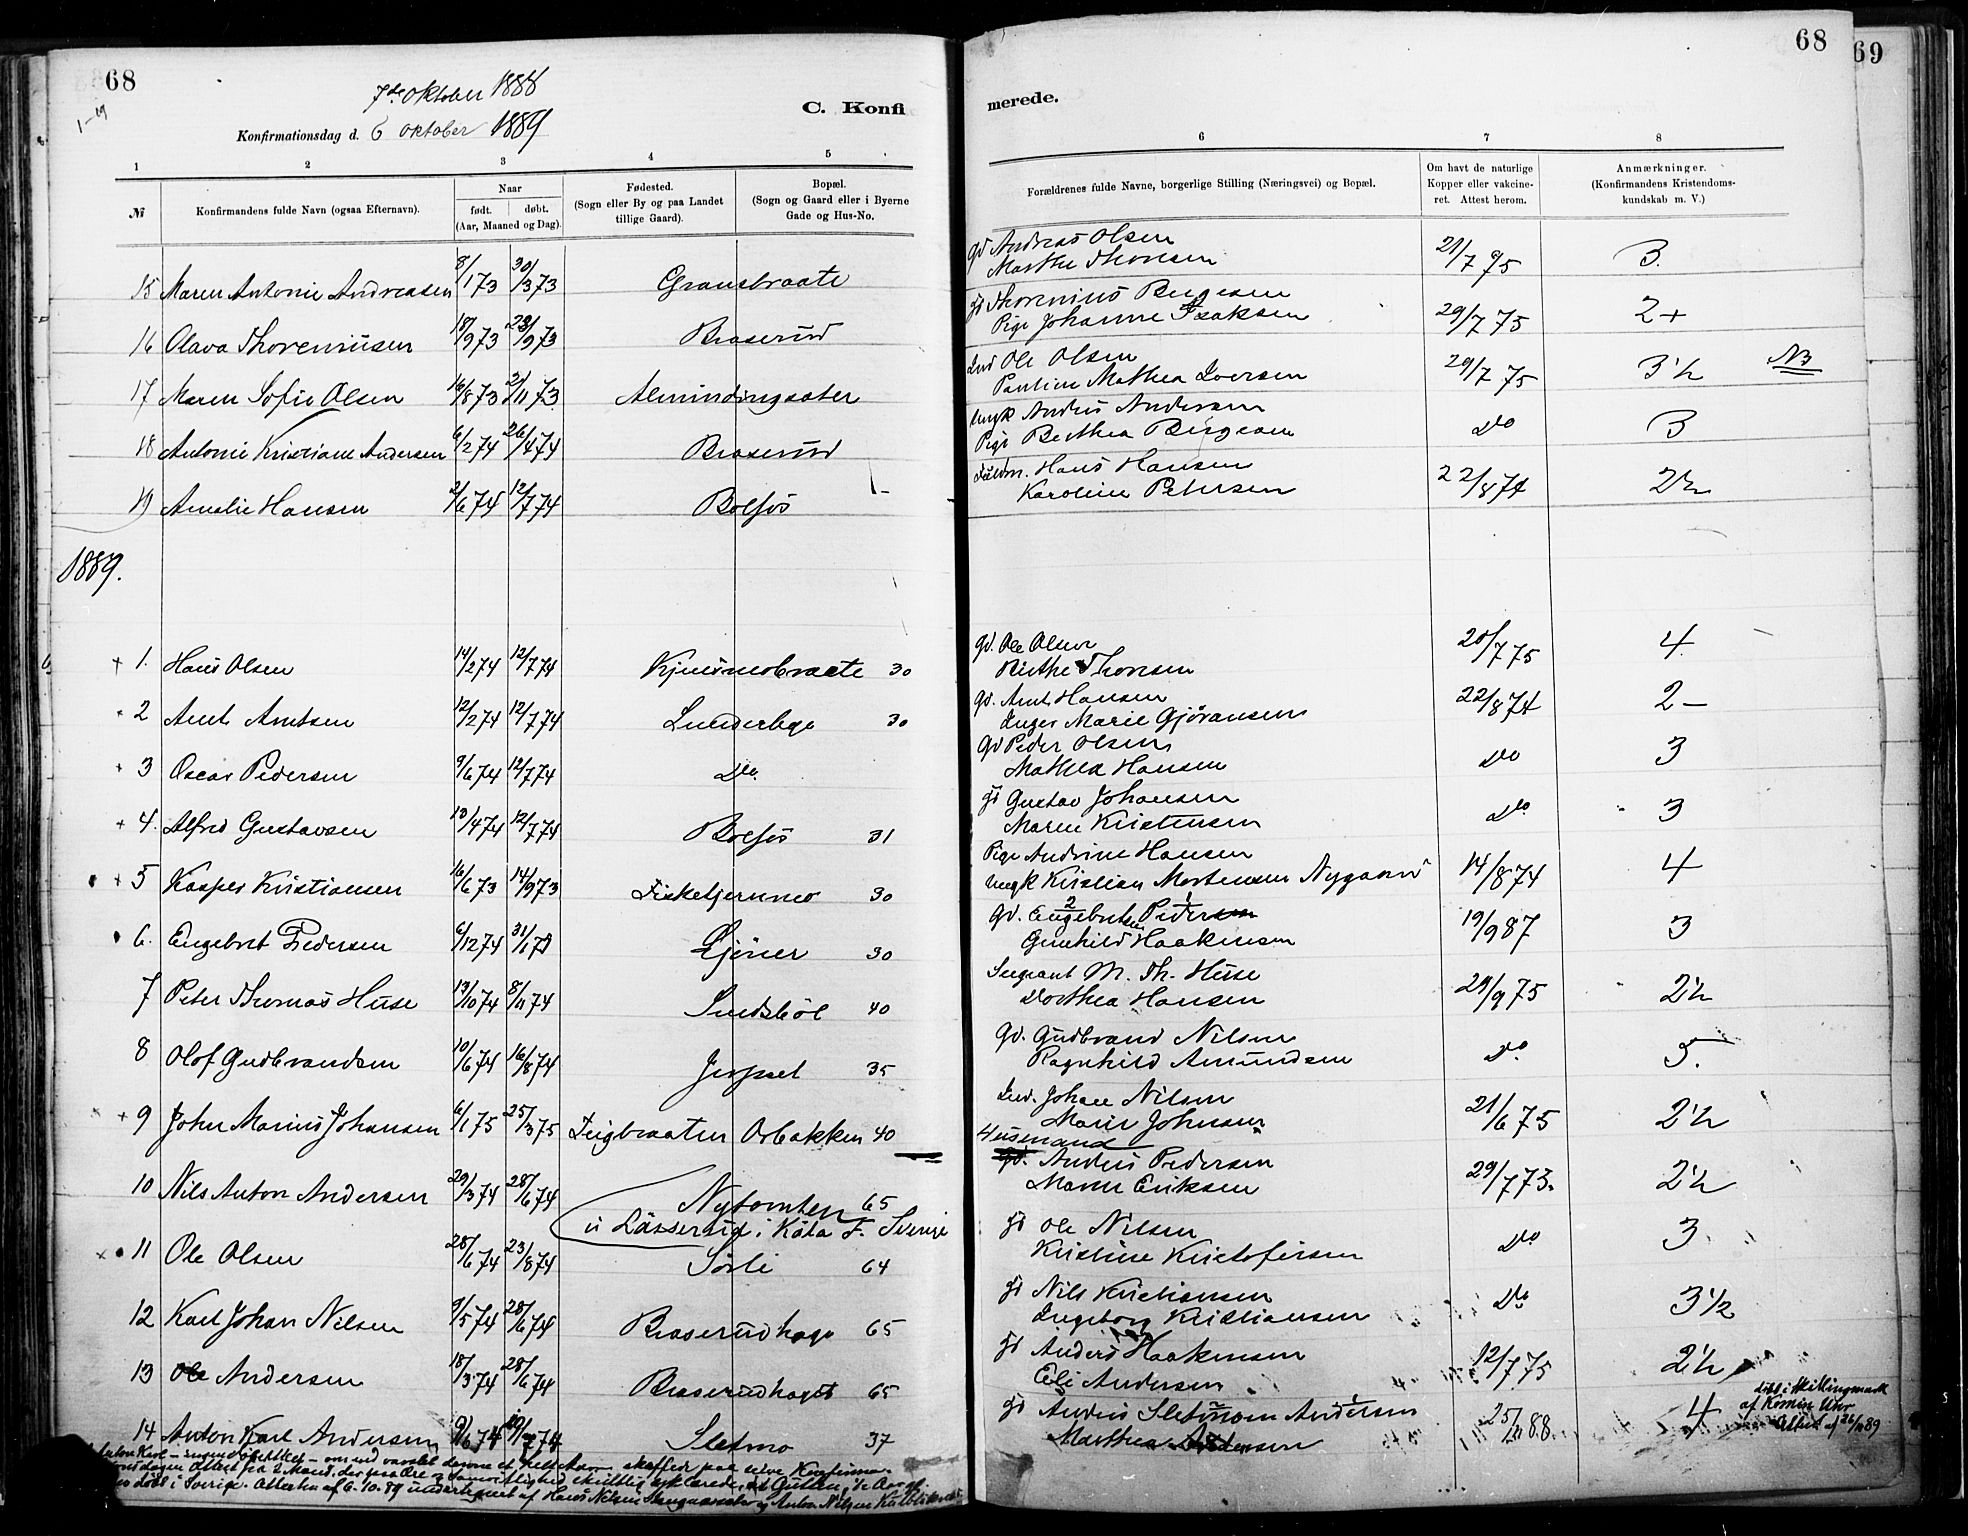 68
7de oktober 1888
C. Konfi
1-19
Konfirmationsdag d. 6 oktober 1889
1 2 3 4 5
№
Konfirmandens fulde Navn (ogsaa Efternavn).
Naar
født. døbt.
(Aar, Maaned og Dag).
Fødested.
(Sogn eller By og paa Landet
tillige Gaard).
Bopæl.
(Sogn og Gaard eller i Byerne
Gade og Hus-No.
15 Maren Antonie Andreasen 8/1 73 30/3 73 Gransbraate
16 Olava Thoreniusen 18/9 73 Braserud
17 Maren Sofie Olsen 16/8 73 2/11 73 Almindingsæter
18 Antonie Kristiane Andersen 6/2 74 26/4 74 Braserud
19 Amalie Hansen 2/6 74 12/7 74 Bolfos
1889.
+ 1. Hans Olsen 14/2 74 12/7 74 Kjensmobraate 30
2 Arnt Arntsen 12/2 74 12/7 74 Lunderhge 30
3 Oscar Pedersen 9/6 74 12/7 74 Do
+ 4. Alfred Gustavsen 13/4 74 12/7 74 Bolfos 31
+ 5 Kasper Kristiansen 16/6 73 14/9 73 Fisketjernmo 30
6. Engebret Pedersen 6/12 74 31/1 Ljøner 30
7 Peter Thomas Huse 13/10 74 8/11 74 Sundsbøl 40
8 Olof Gudbrandsen 10/6 74 16/8 74 Jerpset 35
+ 9 John Marius Johansen 6/1 75 25/3 75 Teigbraaten Osbakken 40
10 Nils Anton Andersen 29/3 74 28/6 74 Nytomten 65
i Lässerud i Köla F. Sverige
11 Ole Olsen 28/6 74 23/8 74 Sørli 64
12 Karl Johan Nilsen 9/5 74 28/6 74 Braserudhage 65
13 Ole Andersen 18/3 74 28/6 74 Braserudhaget 65
14 Anton Karl Andersen 9/6 74 19/7 74 Sletmo 37
merede.
68
69
6 7 8
Forældrenes fulde Navne, borgerlige Stilling (Næringsvei) og Bopæl.
Om havt de naturlige
Kopper eller vakcine-
ret. Attest herom.
Anmærkninger.
(Konfirmandens Kristendoms-
kundskab m. V.)
gd Andreas Olsen
Marthe Thoresen 21/7 75 3.
gd Thorenius Birgesen
Pige Johanne Isaksen 29/7 75 2+
Ind Ole Olsen
Pauline Mathea Iversen 29/7 75 3½ NB
Ungk Anders Andersen
Pige Berthea Birgesen Do 3
Fuldm. Hans Hansen
Karoline Petersen 22/8 74 2½
gd. Ole Olsen
Birthe Thoresen 20/7 75 4.
gd. Arnt Hansen
Inger Marie Gjøransen 22/8 74 2-
gd Peder Olsen
Mathea Hansen Do 3
gd Gustav Johansen
Maren Kristensen Do 3
Pige Andrine Hansen
Ungk Kristian Mortensen Nygaard 14/8 74 4
gd. Engebretsen Pedersen
Gunhild Haakensen 19/9 87 3
Sergeant M. Th. Huse
Dorthea Hansen 29/9 75 2½
gd. Gudbrand Nilsen
Ragnhild Amundsen Do 5.
Ind. Johan Nilsen
Marie Johnsen 21/6 75 2½
Husmand
gd. Anders Pedersen
Maren Eriksen 29/7 73. 2½
gd Ole Nilsen
Kristine Kristofersen Do 3
gd Nils Kristiansen
Ingeborg Kristiansen Do 3½
gd Anders Haakensen
Eli Andersen 12/7 75 2½
gd Anders Sletmoen Andersen
Marthea Andersen 25/11 88. 4
døbt i Skillingmark
Attest af 26/11 89